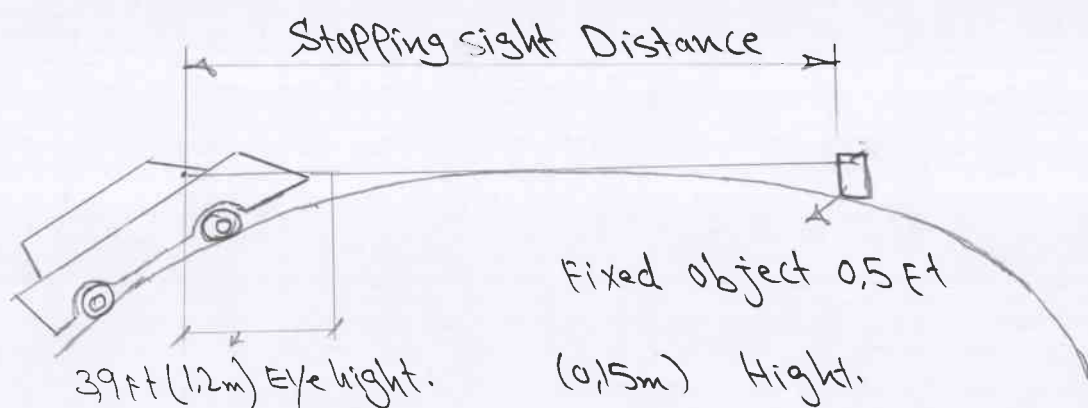 Stopping sight Distance
Fixed object 0,5 Ft
3,9 Ft (1,2m) Eye hight.
(0,15m) Hight.